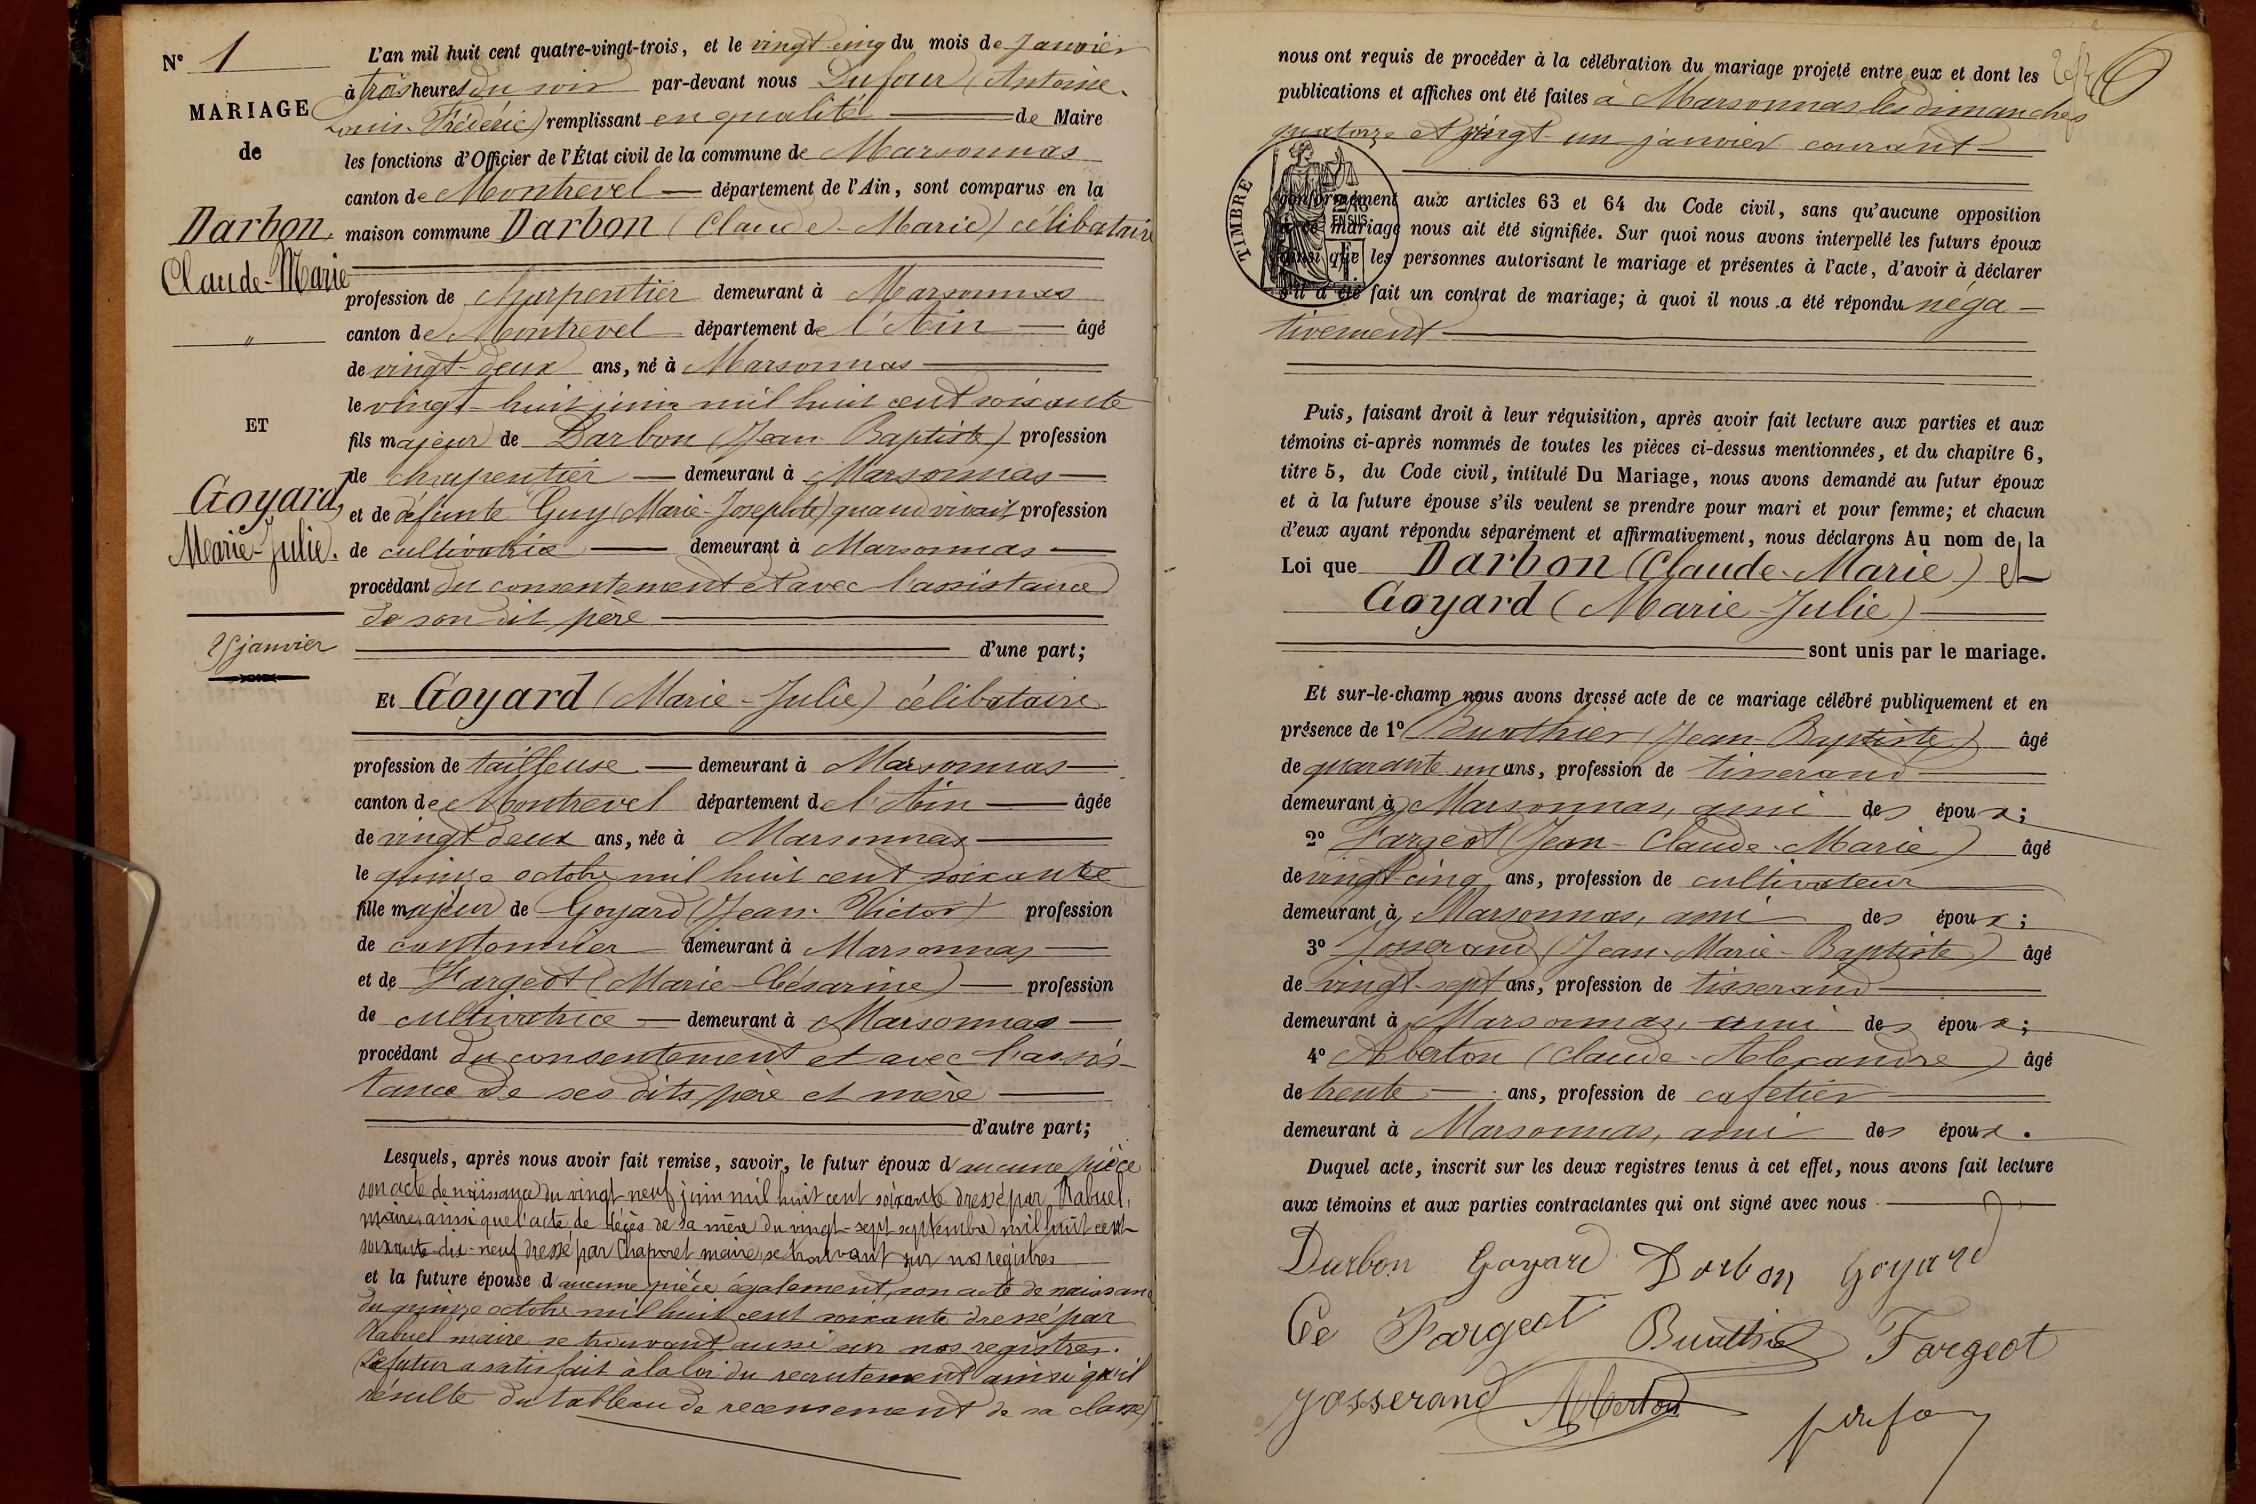 N° 1
MARIAGE
de
Darbon,
Claude-Marie
"
ET
Goyard,
Marie-Julie.
25 janvier
L'an mil huit cent quatre-vingt-trois, et le vingt-cinq du mois de Janvier
à trois heures du soir par-devant nous Dufour (Antoine-
Louis-Frédéric) remplissant en qualité de Maire
les fonctions d'Officier de l'État civil de la commune de Marsonnas
canton de Montrevel département de l'Ain, sont comparus en la
maison commune Darbon (Claude-Marie) célibataire
profession de charpentier demeurant à Marsonnas
canton de Montrevel département de l'Ain âgé
de vingt-deux ans, né à Marsonnas
le vingt-huit juin mil huit cent soixante
fils majeur de Darbon (Jean-Baptiste) profession
de charpentier demeurant à Marsonnas
et de défunte Guy (Marie-Josephte) quand vivait profession
de cultivatrice demeurant à Marsonnas
procédant du consentement et avec l'assistance
de son dit père
d'une part;
Et Goyard (Marie-Julie) célibataire
profession de tailleuse demeurant à Marsonnas
canton de Montrevel département de l'Ain âgée
de vingt-deux ans, née à Marsonnas
le quinze octobre mil huit cent soixante
fille majeur de Goyard (Jean-Victor) profession
de cantonnier demeurant à Marsonnas
et de Fargeot (Marie-Césarine) profession
de cultivatrice demeurant à Marsonnas
procédant du consentement et avec l'assis-
tance de ses dits père et mère
d'autre part;
Lesquels, après nous avoir fait remise, savoir, le futur époux d'aucune pièce
son acte de naissance du vingt-neuf juin mil huit cent soixante dressé par Rabuel,
maire, ainsi que l'acte de décès de sa mère du vingt-sept septembre mil huit cent
soixante-dix-neuf dressé par Chaporel maire, se trouvant sur nos registres
et la future épouse d'aucune pièce également, son acte de naissance
du quinze octobre mil huit cent soixante dressé par
Rabuel maire se trouvant aussi sur nos registres.
Le futur a satisfait à la loi du recrutement ainsi qu'il
résulte du tableau de recensement de sa classe
nous ont requis de procéder à la célébration du mariage projeté entre eux et dont les
publications et affiches ont été faites à Marsonnas les dimanches
quatorze et vingt-un janvier courant
TIMBRE
conformément aux articles 63 et 64 du Code civil, sans qu'aucune opposition
à ce mariage nous ait été signifiée. Sur quoi nous avons interpellé les futurs époux
ainsi que les personnes autorisant le mariage et présentes à l'acte, d'avoir à déclarer
s'il a été fait un contrat de mariage; à quoi il nous a été répondu néga-
tivement
Puis, faisant droit à leur réquisition, après avoir fait lecture aux parties et aux
témoins ci-après nommés de toutes les pièces ci-dessus mentionnées, et du chapitre 6,
titre 5, du Code civil, intitulé Du Mariage, nous avons demandé au futur époux
et à la future épouse s'ils veulent se prendre pour mari et pour femme; et chacun
d'eux ayant répondu séparément et affirmativement, nous déclarons Au nom de la
Loi que Darbon (Claude-Marie) et
Goyard (Marie-Julie)
sont unis par le mariage.
Et sur-le-champ nous avons dressé acte de ce mariage célébré publiquement et en
présence de 1° Buathier (Jean-Baptiste) âgé
de quarante un ans, profession de tisserand
demeurant à Marsonnas, ami des époux;
2° Fargeot (Jean-Claude-Marie) âgé
de vingt-cinq ans, profession de cultivateur
demeurant à Marsonnas, ami des époux;
3° Josserand (Jean-Marie-Baptiste) âgé
de vingt-sept ans, profession de tisserand
demeurant à Marsonnas, ami des époux;
4° Alberton (Claude-Alexandre) âgé
de trente ans, profession de cafetier
demeurant à Marsonnas, ami des époux.
Duquel acte, inscrit sur les deux registres tenus à cet effet, nous avons fait lecture
aux témoins et aux parties contractantes qui ont signé avec nous
Darbon Goyard Darbon Goyard
Ce Fargeot Buathier Fargeot
Josserand Alberton
Dufour